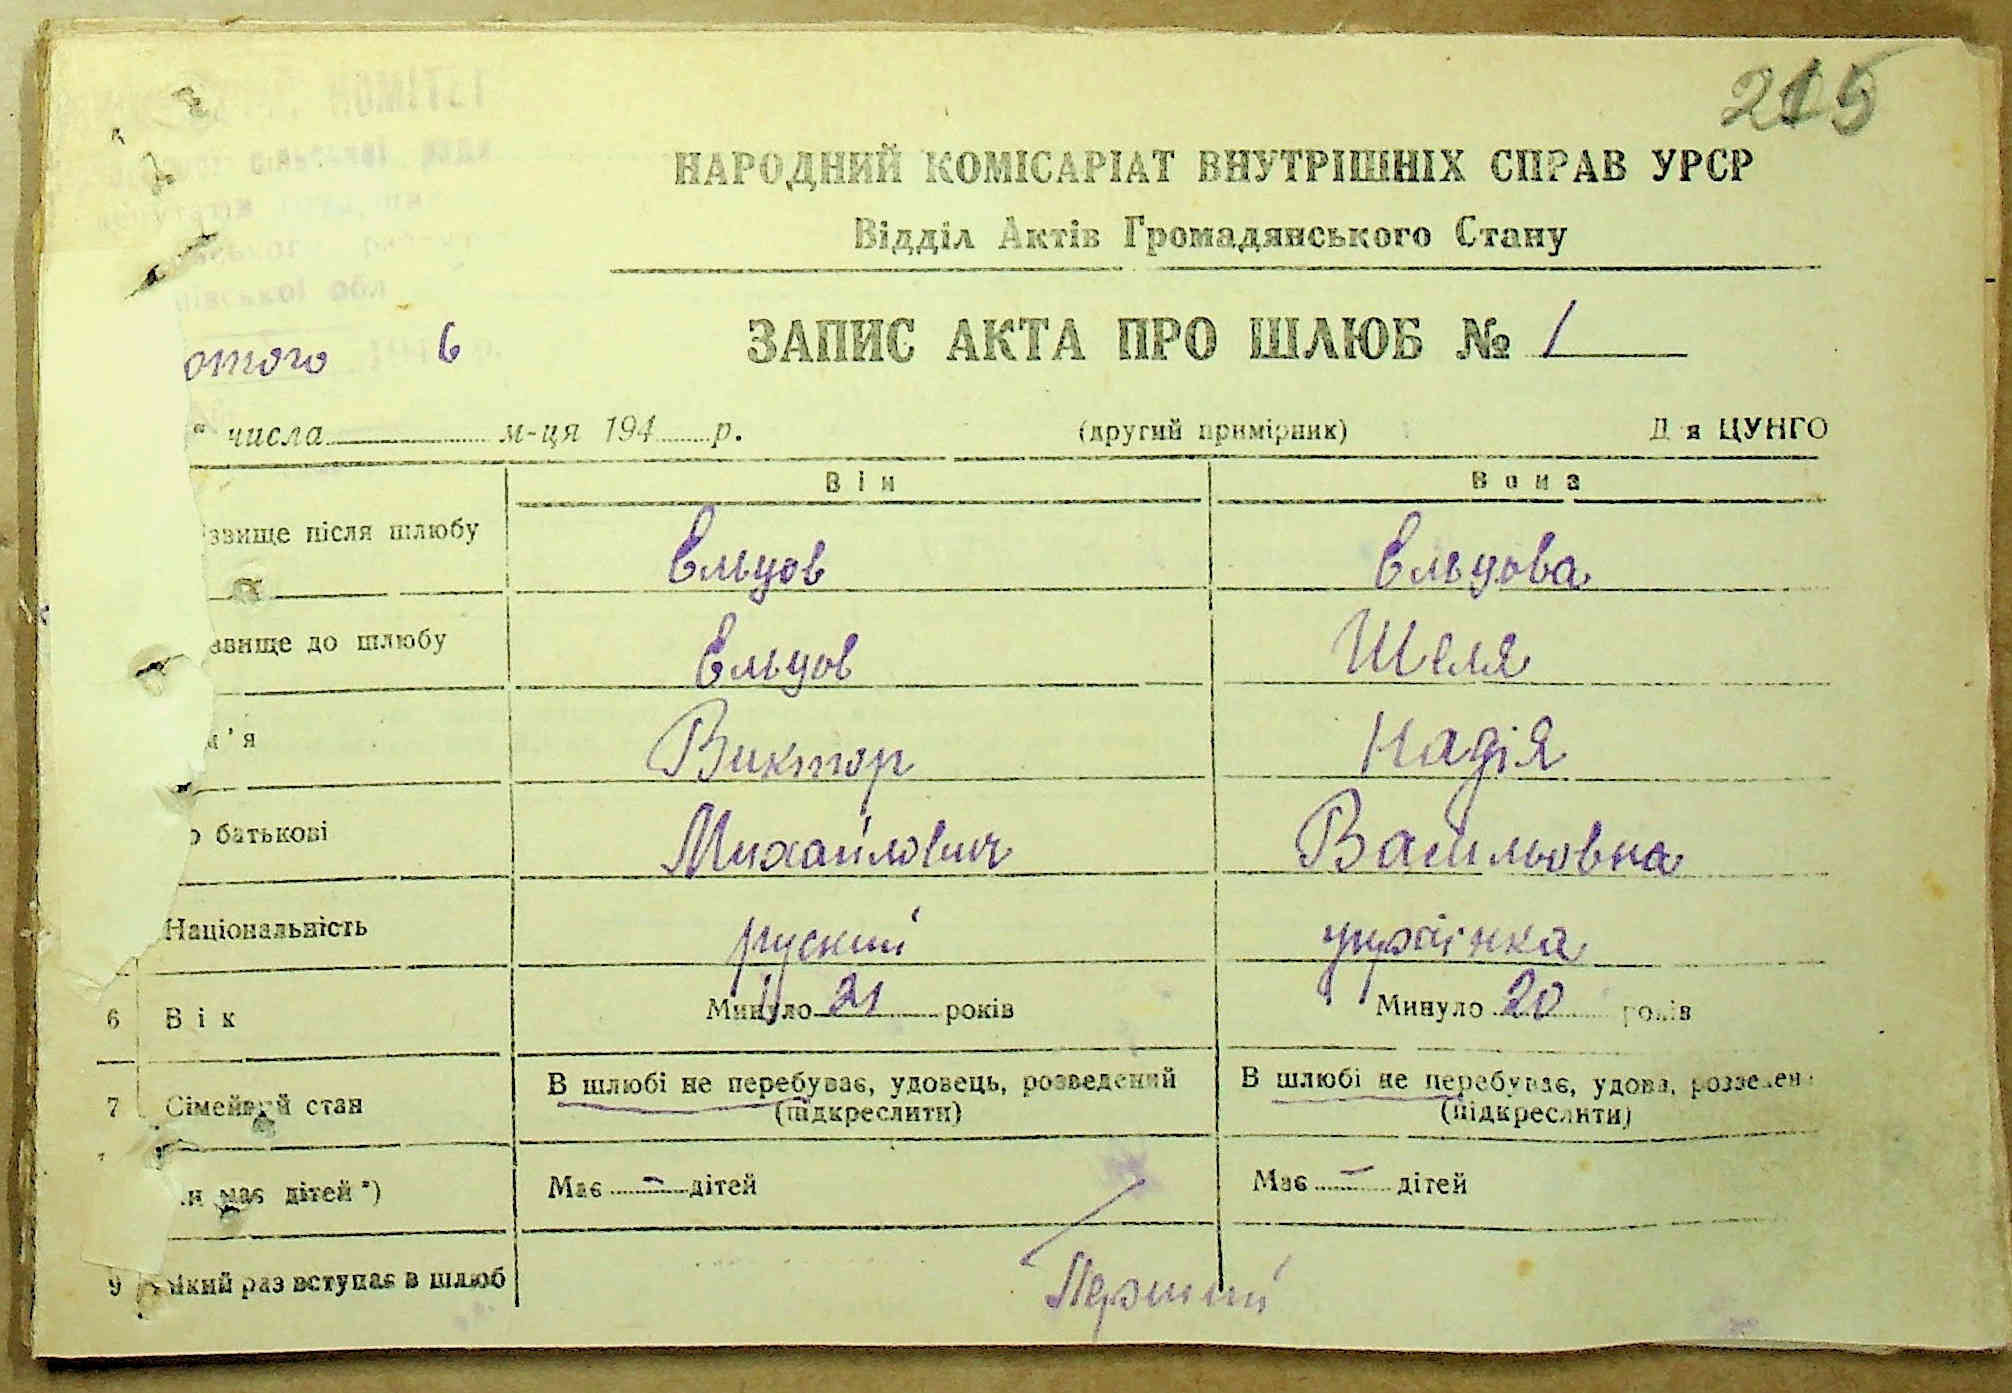 215
НАРОДНИЙ КОМІСАРІАТ ВНУТРІШНІХ СПРАВ УРСР
Відділ Актів Громадянського Стану
ЗАПИС АКТА ПРО ШЛЮБ № 1
отого 6
" числа м-ця 194 р. (другий примірник) Д я ЦУНГО
Він Вона
звище після шлюбу Ельцов Ельцова
звище до шлюбу Ельцов Шеля
м'я Виктор Надія
о батькові Михайлович Васильовна
Національність руский українка
6 Вік Минуло 21 років Минуло 20 років
7 Сімейний стан В шлюбі не перебуває, удовець, розведений В шлюбі не перебуває, удова, розведен
(підкреслити) (підкреслити)
и має дітей *) Має – дітей Має – дітей
9 який раз вступає в шлюб Перший